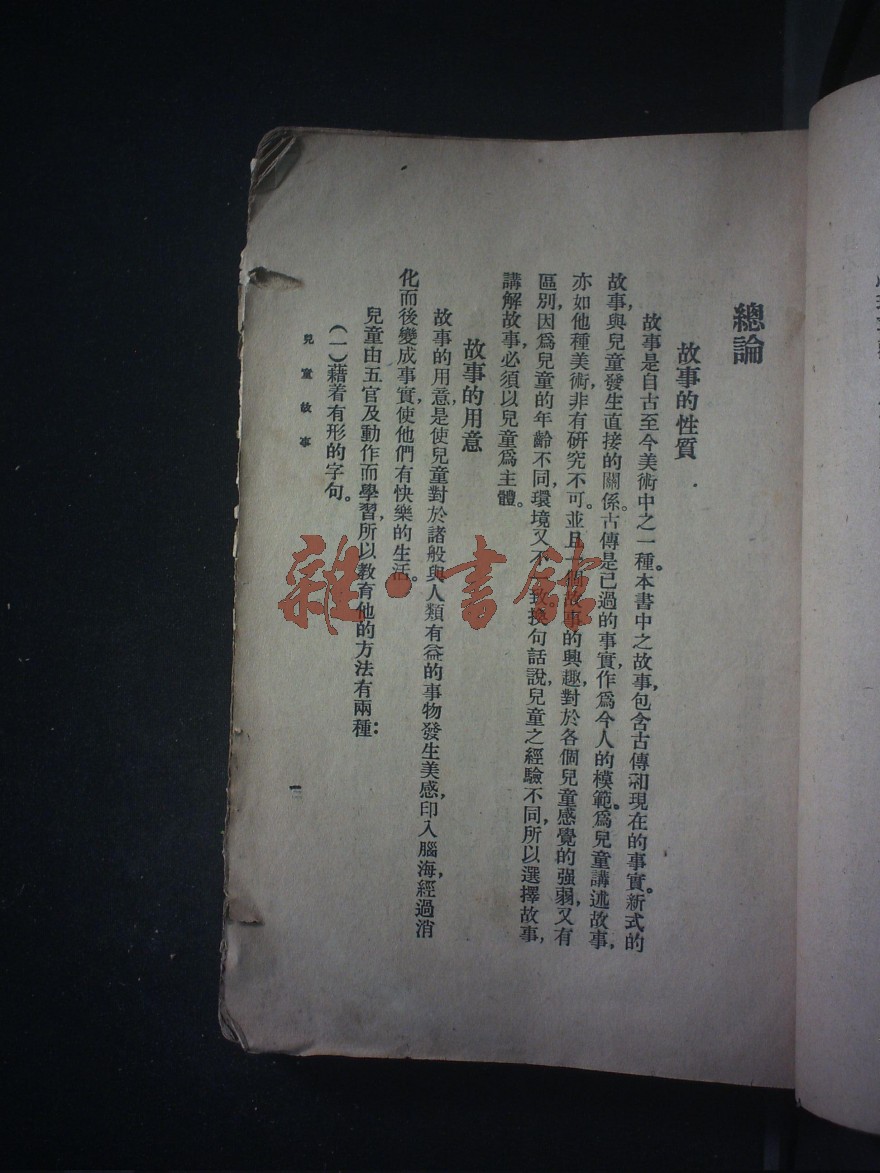 總論
故事的性質
故事是自古至今美術中之一種。本書中之故事,包含古傳和現在的事實。新式的
故事,與兒童發生直接的關係。古傳是已過的事實,作爲今人的模範。爲兒童講述故事,
亦如他種美術,非有研究不可。並且一個故事的興趣,對於各個兒童感覺的强弱,又有
區別,因爲兒童的年齡不同,環境又不一致。換句話說,兒童之經驗不同,所以選擇故事,
講解故事,必須以兒童爲主體。
故事的用意
故事的用意,是使兒童對於諸般與人類有益的事物發生美感,印入腦海,經過消
化而後變成事實,使他們有快樂的生活。
兒童由五官及動作而學習,所以教育他的方法有兩種:
(一)藉着有形的字句。
兒童故事
一
雜·書館